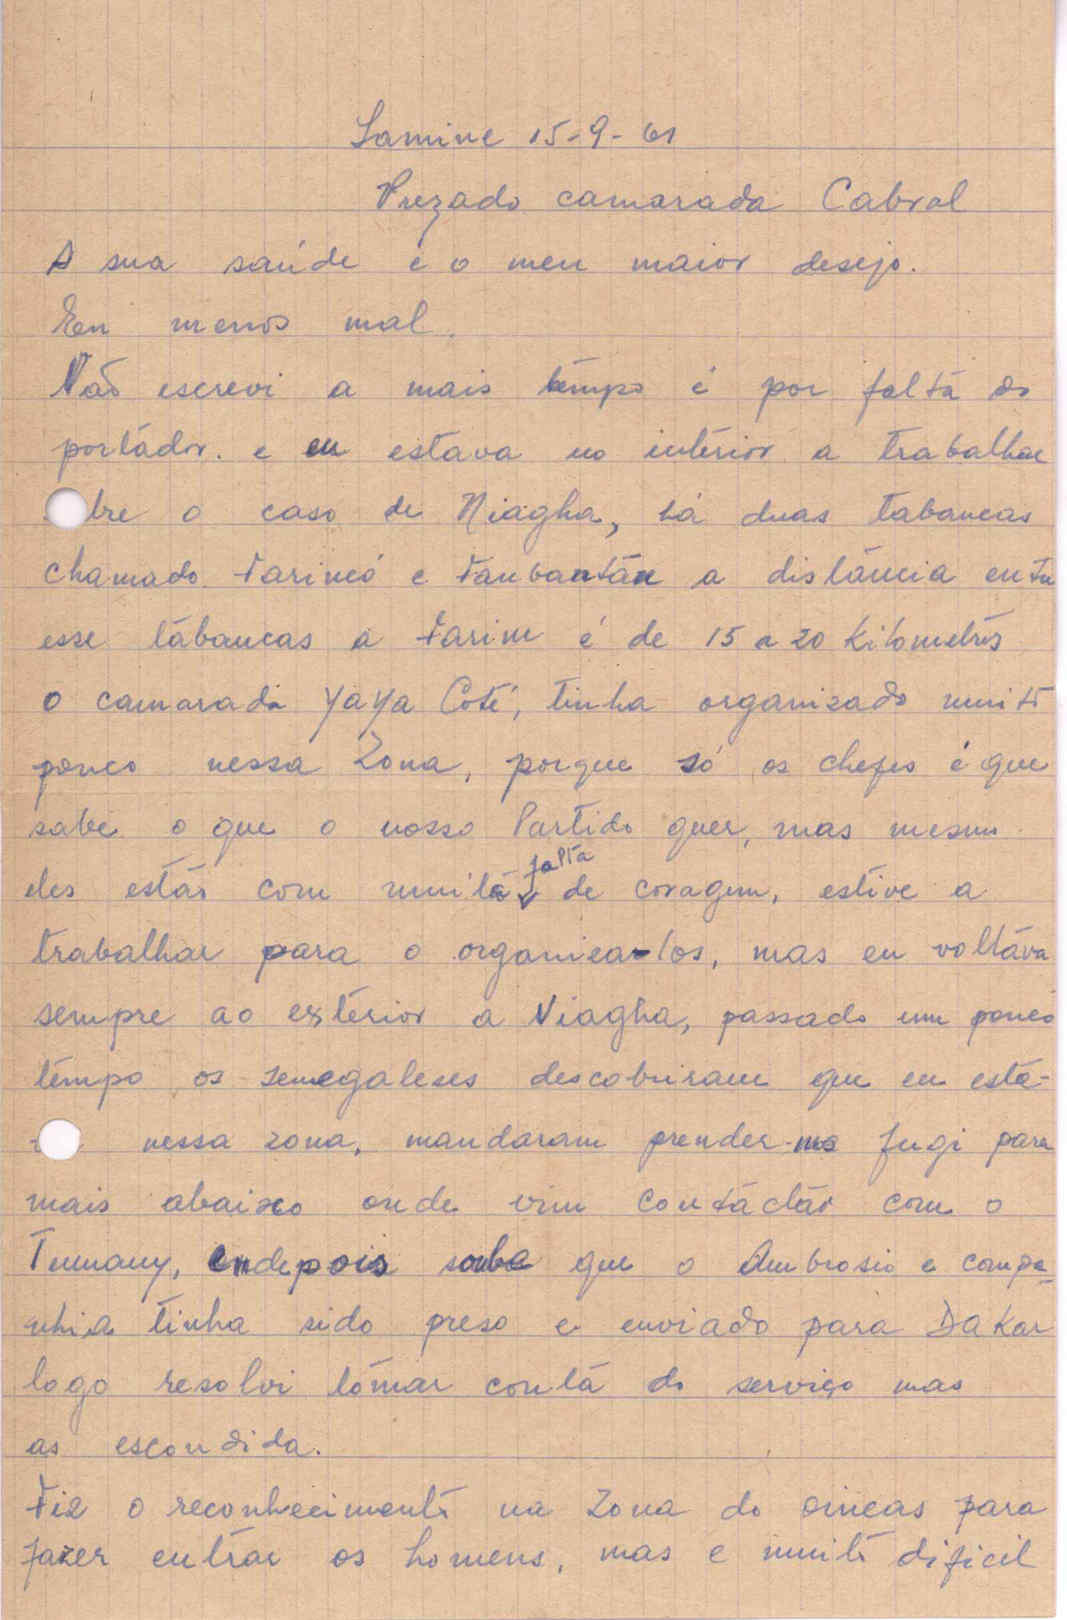 Lamine 15-9-61
Prezado camarada Cabral
A sua saúde é o meu maior desejo.
Eeu menos mal.
Não escrevi a mais tempo é por falta do
portador. e eu estava no interior a trabalhar
bre o caso de Niagha, há duas tabancas
chamado Farincó e Tanbantān a distância entre
esse tabancas a Farim é de 15 a 20 kilometros
o camarada Yaya Coté, tinha organizado muito
pouco nessa Zona, porque só os chefes é que
sabe o que o nosso Partido quer, mas mesmo
eles estás com muita falta de coragem, estive a
trabalhar para o organizar-los, mas eu voltáva
sempre ao exterior a Niagha, passado um pouco
tempo os senegaleses descobriram que eu está-
nessa zona, mandaram prender-me fugi para
mais abaixo onde vim contáctár com o
Tumany, endepois soube que o Ambrosio e compa-
nhia tinha sido preso e enviado para Dakar
logo resolvi tomar conta do serviço mas
as escondida.
Fiz o reconhecimento na Zona do oincas para
fazer entrar os homens, mas é muito dificil